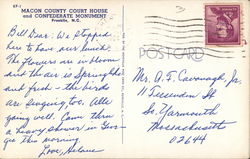 KY-1
MACON COUNTY COURT HOUSE
and CONFEDERATE MONUMENT
Franklin, N.C.
Bill Dear: We stopped
here to have our lunch.
The flowers are in bloom
and the air is Springlike
and fresh - the birds
are singing too. All
going well. Came thru
a heavy shower in Geor-
gia this morning
Love, Helene
POST CARD
Mr. A. F. Cavanagh, Jr.
11 Tecumseh St
So. Yarmouth
Massachusetts
02644